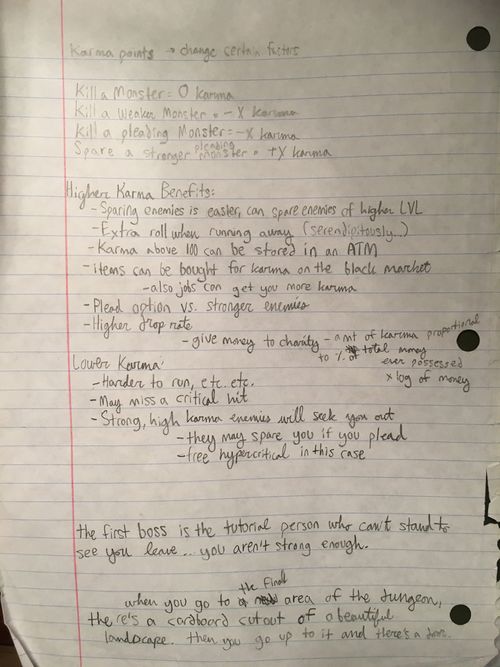 Karma points → change certain factors
Kill a Monster = 0 karma
Kill a Weaker Monster = -X karma
Kill a pleading Monster = -X karma
Spare a stronger pleading monster = +X karma
Higher Karma Benefits:
- Sparing enemies is easier, can spare enemies of higher LVL
- Extra roll when running away (serendipitously...)
- Karma above 100 can be stored in an ATM
- items can be bought for karma on the black market
- also jobs can get you more karma
- Plead option vs. stronger enemies
- Higher drop rate
- give money to charity - amt of karma proportional
to % of total money
ever possessed
x log of money
Lower Karma:
- Harder to run, etc. etc.
- May miss a critical hit
- Strong, high karma enemies will seek you out
- they may spare you if you plead
- free hypercritical in this case
the first boss is the tutorial person who can't stand to
see you leave... you aren't strong enough.
when you go to the final area of the dungeon,
there's a cardboard cutout of a beautiful
landscape. then you go up to it and there's a door.